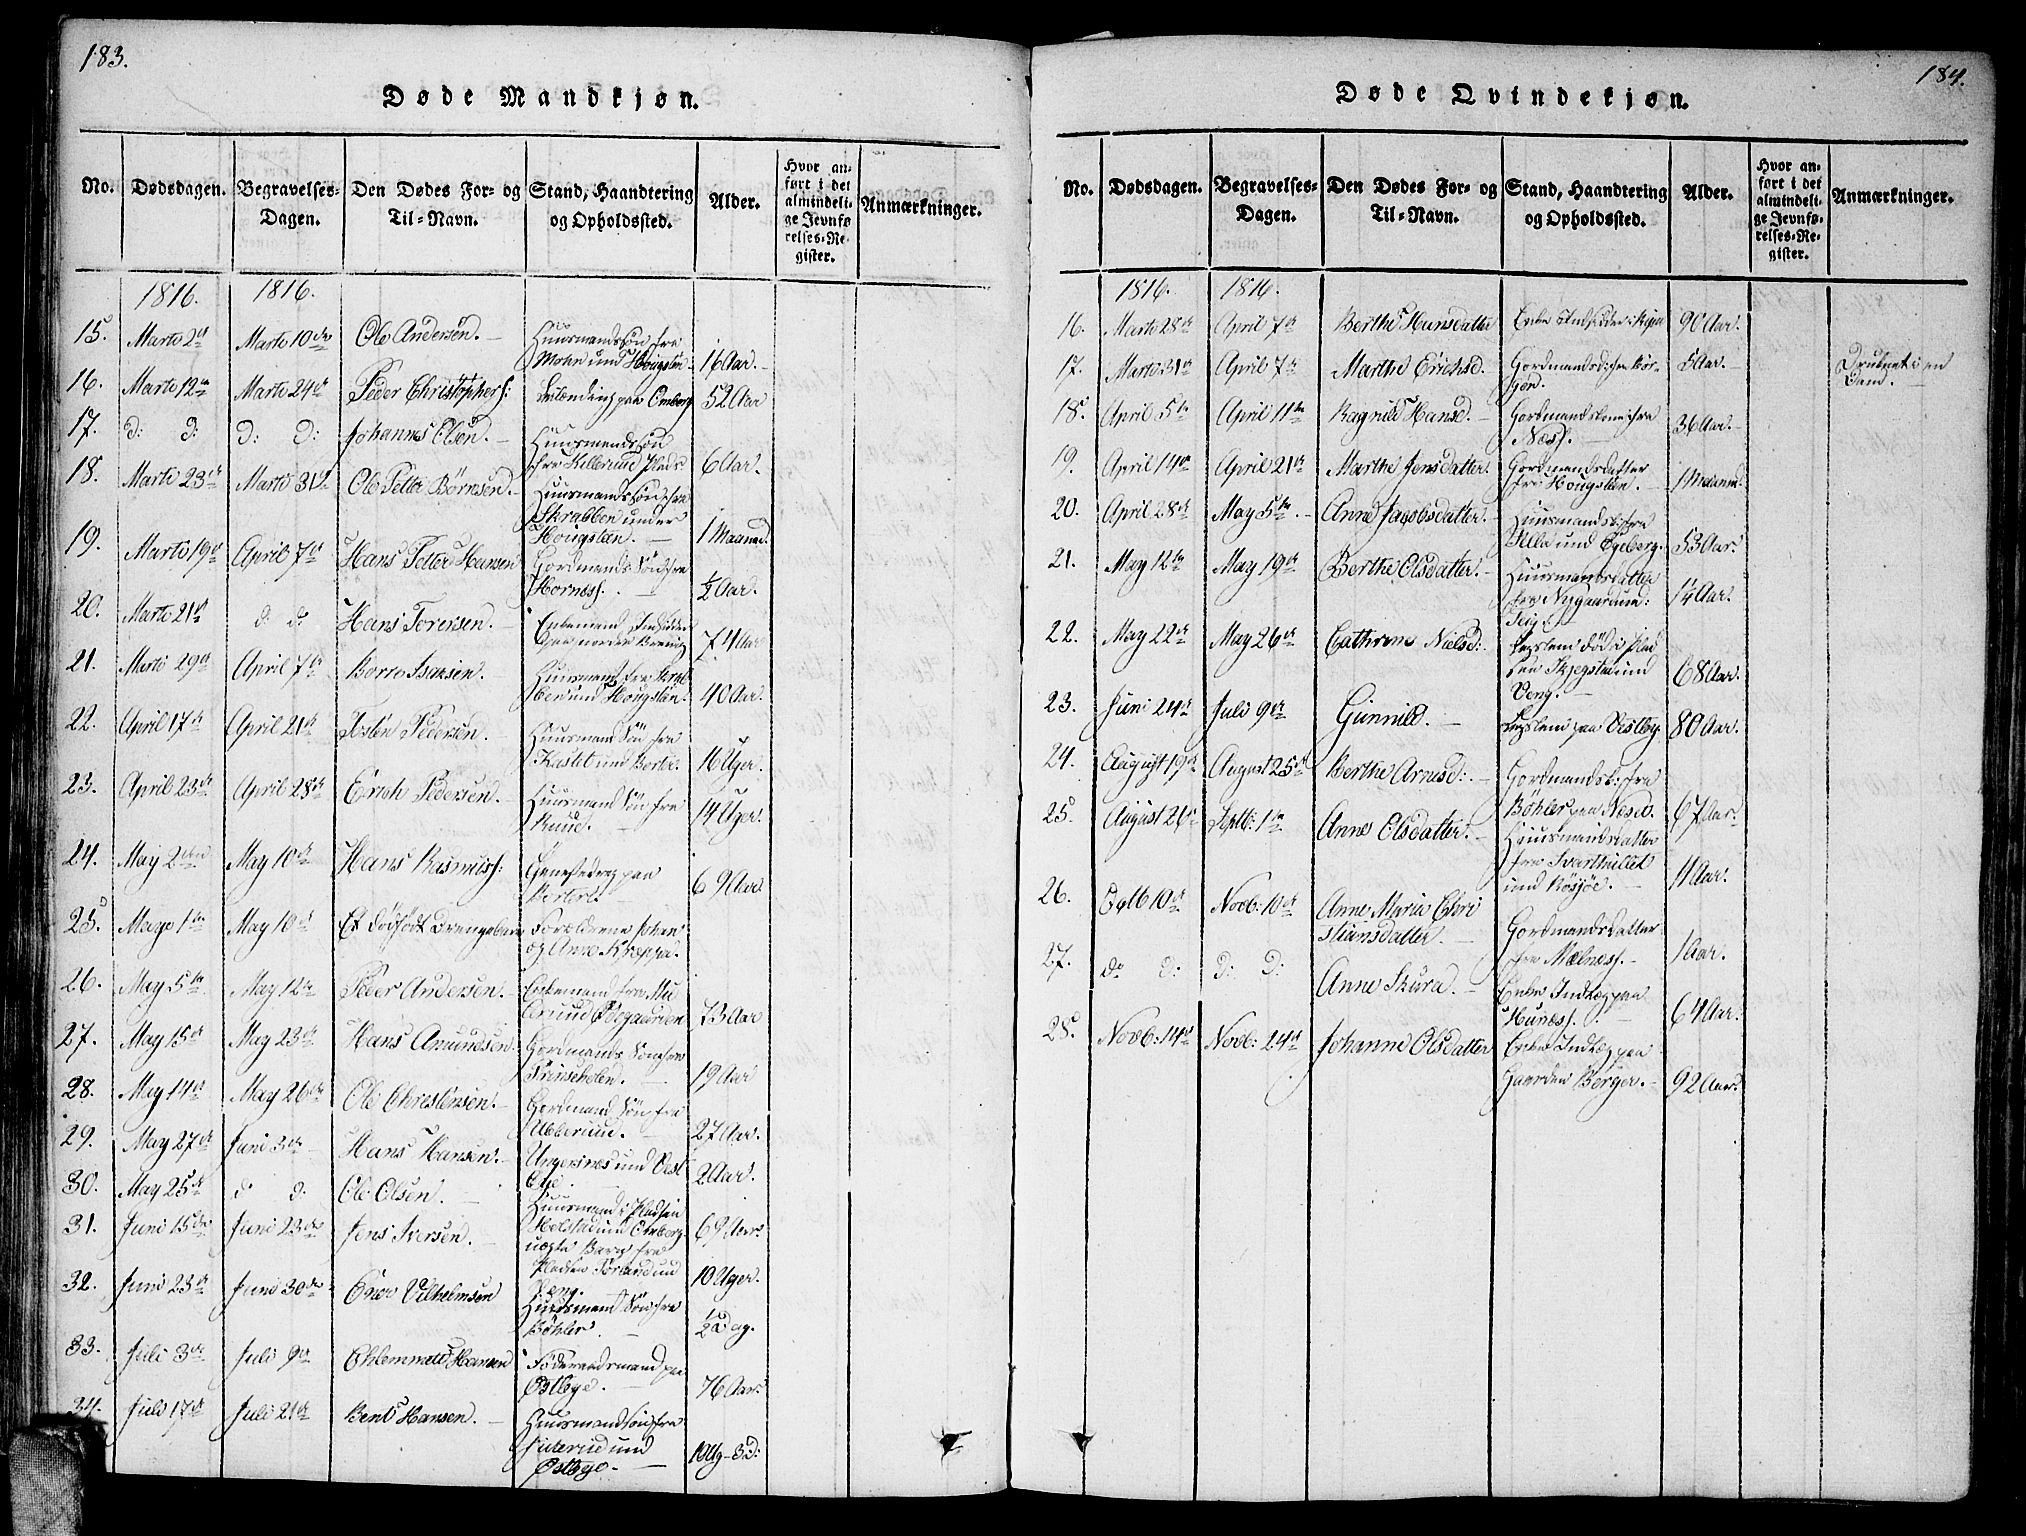 183.
Døde Mandkjøn.
No.
Dødsdagen.
Begravelses-
Dagen.
Den Dødes For- og
Til-Navn.
Stand, Haandtering
og Opholdssted.
Alder.
Hvor an-
ført i det
almindeli-
ge Jevnfø-
relses-Re-
gister.
Anmærkninger.
1816. 1816.
15. Marts 2d Marts 10de Ole Andersen. Huusmands Søn fra
Mohn und Hougsten 16 Aar.
16. Marts 12te Marts 24de Peder Christophers: paa Omberg 52 Aar
17. d: d: d: d: Johannes Olsen. Huusmands Søn
fra Killerud Plads 6 Aar.
18. Marts 23de Marts 31te Ole Petter Børnsen. Huusmands Søn fra
Skrabben under
Hougsten. 1 Maaned.
19. Marts 19de April 7de Hans Petter Hansen Gordmands Søn fra
Hornæss. ½ Aar.
20. Marts 21de d: d: Hans Torersen. Enkemand Indsidder
74 Aar
21. Marts 29de April 7de Borre Isaksen. Huusmand fra Skrab
ben und Hougsten. 40 Aar.
22. April 17de April 21de Tosten Pedersen. Huusmand Søn fra
Kastet und 16 Uger.
23. April 23de April 28de Erich Pedersen. Huusmand Søn fra
Ruud. 14 Uger.
24. May 2den May 10de Hans Rasmuss: paa
69 Aar
25. Maye 1te May 10de Et dødfødt Drengebarn Forældrene Johan
og Anne Kloppa.
26. May 5te May 12te Peder Andersen. Enkemand fra Mu
Ødegaarden 73 Aar
27. May 15de May 23de Hans Amundsen. Gordmands Søn fra
19 Aar
28. May 14de May 26de Ole Christensen. Gordmand Søn fra
Ubberud. 27 Aar.
29. May 27de Juni 3de Hans Hansen. Ungersnes und Vest
bye. 2 Aar.
30. May 25de d: d: Ole Olsen. Huusmand i Pladsen
Holstad und Omberg 69 Aar.
31. Juni 15de Juni 23de Jens Iversen. uægte Barn fra
Pladsen und
Veng. 10 Uger.
32. Juni 23de Juni 30de Vilhelmsen Huusmand Søn fra
Böhler. ½ Dag.
33. Juli 3de Juli 9de Ehlemmets Hansen Føderaadsmand paa
Østbye. 76 Aar.
34. Juli 17de Juli 21de Bent Hansen. Huusmand Søn fra
und
Østbye. 10 Ug 3 D:
184.
Døde Qvindekjøn.
No.
Dødsdagen.
Begravelses-
Dagen.
Den Dødes For- og
Til-Navn.
Stand, Haandtering
og Opholdssted.
Alder.
Hvor an-
ført i det
almindeli-
ge Jevnfø-
relses-Re-
gister.
Anmærkninger.
1816. 1816.
16. Marts 28de April 7de Berthe Hansdatter Enke Indsidder 90 Aar.
17. Marts 31te April 7de Marthe Erichsd. Gordmandsd: fra Bör-
5 Aar. Druknet i en
18. April 5te April 11te Ragnild Hansd. Gordmandskone fra
Næss. 36 Aar.
19. April 14de April 21de Marthe Jensdatter. Gordmandsdatter
fra Hougsten. 1 Maaned.
20. April 28de May 5te Anne Jacobsdatter. Huusmandsk: fra
und Egeberg. 53 Aar.
21. May 12te May 19de Berthe Olsdatter. Huusmandsdatter
fra Nygaard und:
Teig. 14 Aar.
22. May 22de May 26de Cathrine Nielsd: Legslem død i Plad
sen Skjegstad und
Veng. 68 Aar.
23. Juni 24de Juli 9de Gunnild. Legslem paa Vestby. 80 Aar.
24. August 19de August 25de Berthe Arnesd: Gordmandsk: fra
Böhler paa Nesod. 67 Aar.
25. August 21de Septb: 1te Anne Olsdatter. Huusmandsdatter
fra Svarthullet
und Røsjøe. 11 Aar.
26. Octb 10de Novb: 10de Anne Marie Chri
stiansdatter. Gordmandsdatter
fra Mælness. 1 Aar.
27. do d: d: d: Anne Skura. Enke Indlæg paa
64 Aar.
28. Novb: 14de Novb: 24de Johanne Olsdatter Enke Indlæg paa
Gaarden Berger. 92 Aar.